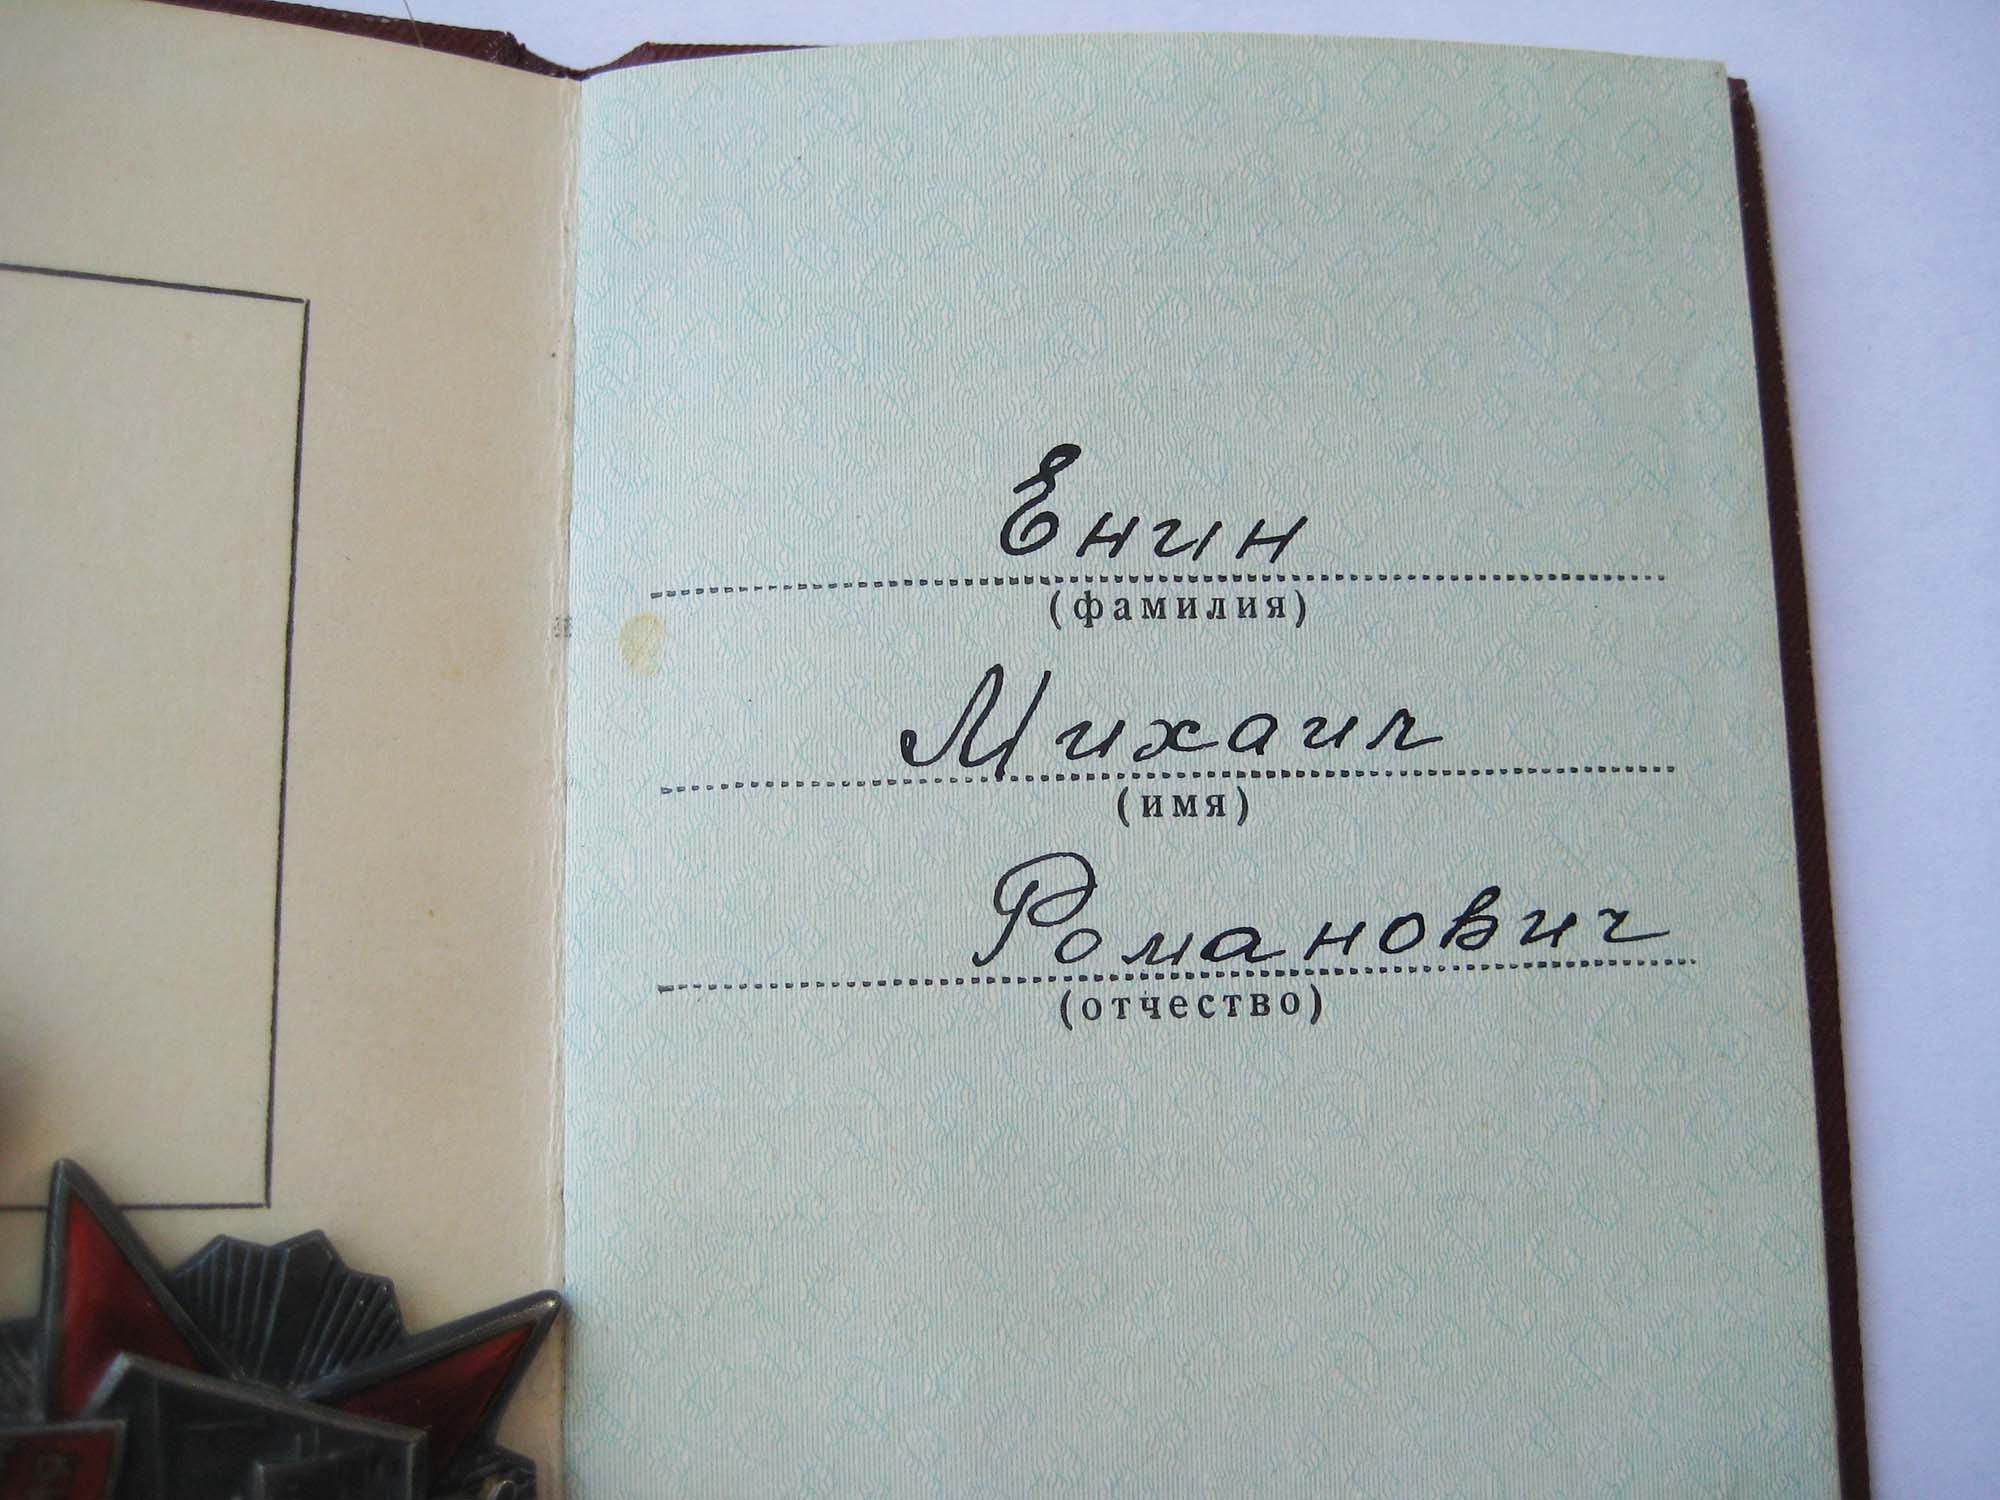 Енин
(фамилия)
Михаил
(имя)
Романович
(отчество)